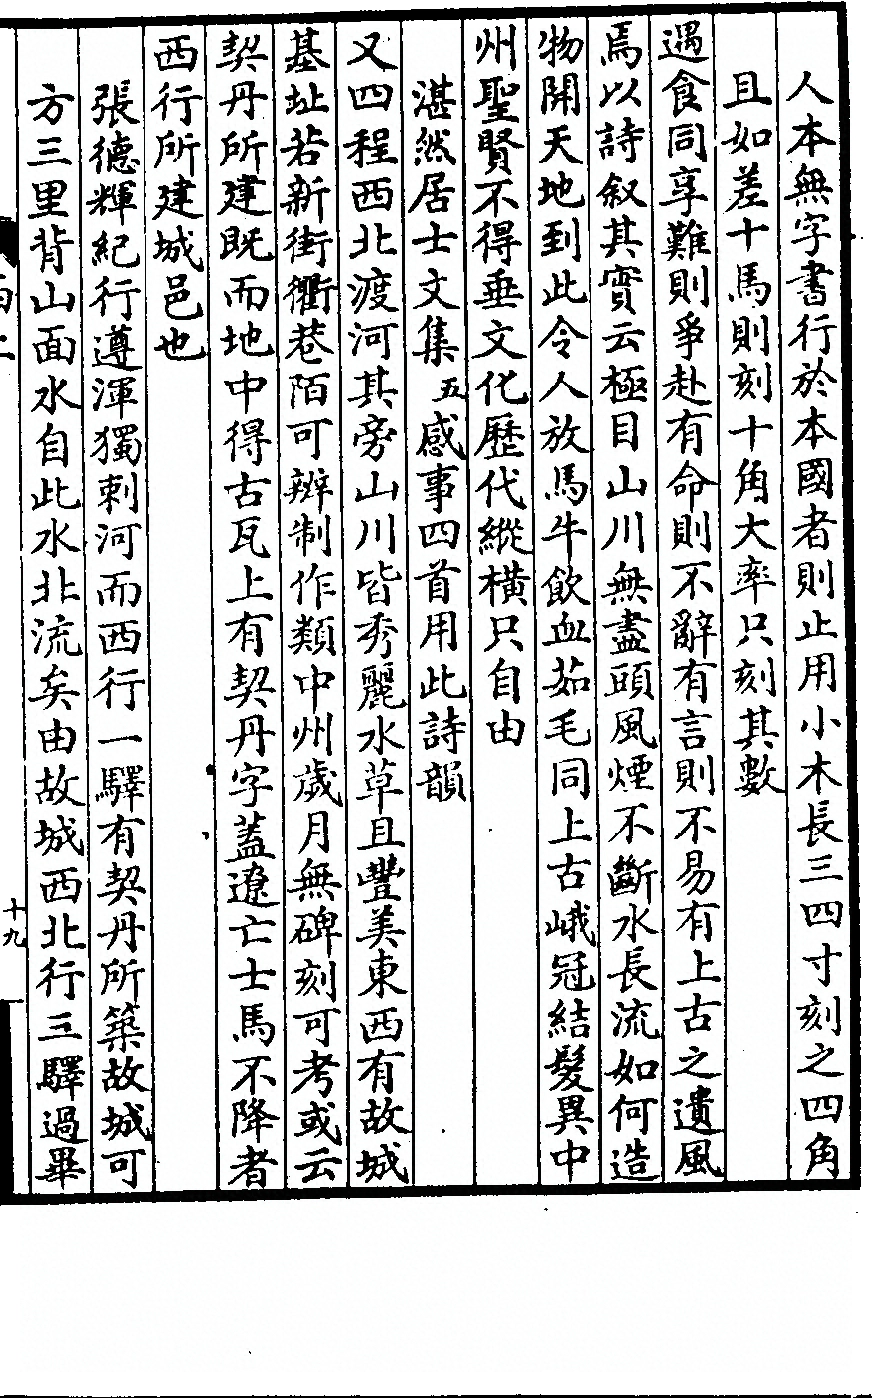 人本無字書行於本國者則止用小木長三四寸刻之四角
且如差十馬則刻十角大率只刻其數
遇食同享難則爭赴有命則不辭有言則不易有上古之遺風
焉以詩叙其實云極目山川無盡頭風煙不斷水長流如何造
物開天地到此令人放馬牛飲血茹毛同上古峨冠結髮異中
州聖賢不得垂文化歷代縱橫只自由
湛然居士文集五感事四首用此詩韻
又四程西北渡河其旁山川皆秀麗水草且豐美東西有故城
基址若新街衢巷陌可辨制作類中州歲月無碑刻可考或云
契丹所建既而地中得古瓦上有契丹字蓋遼亡士馬不降者
西行所建城邑也
張德輝紀行遵渾獨剌河而西行一驛有契丹所築故城可
方三里背山面水自此水北流矣由故城西北行三驛過畢
十九